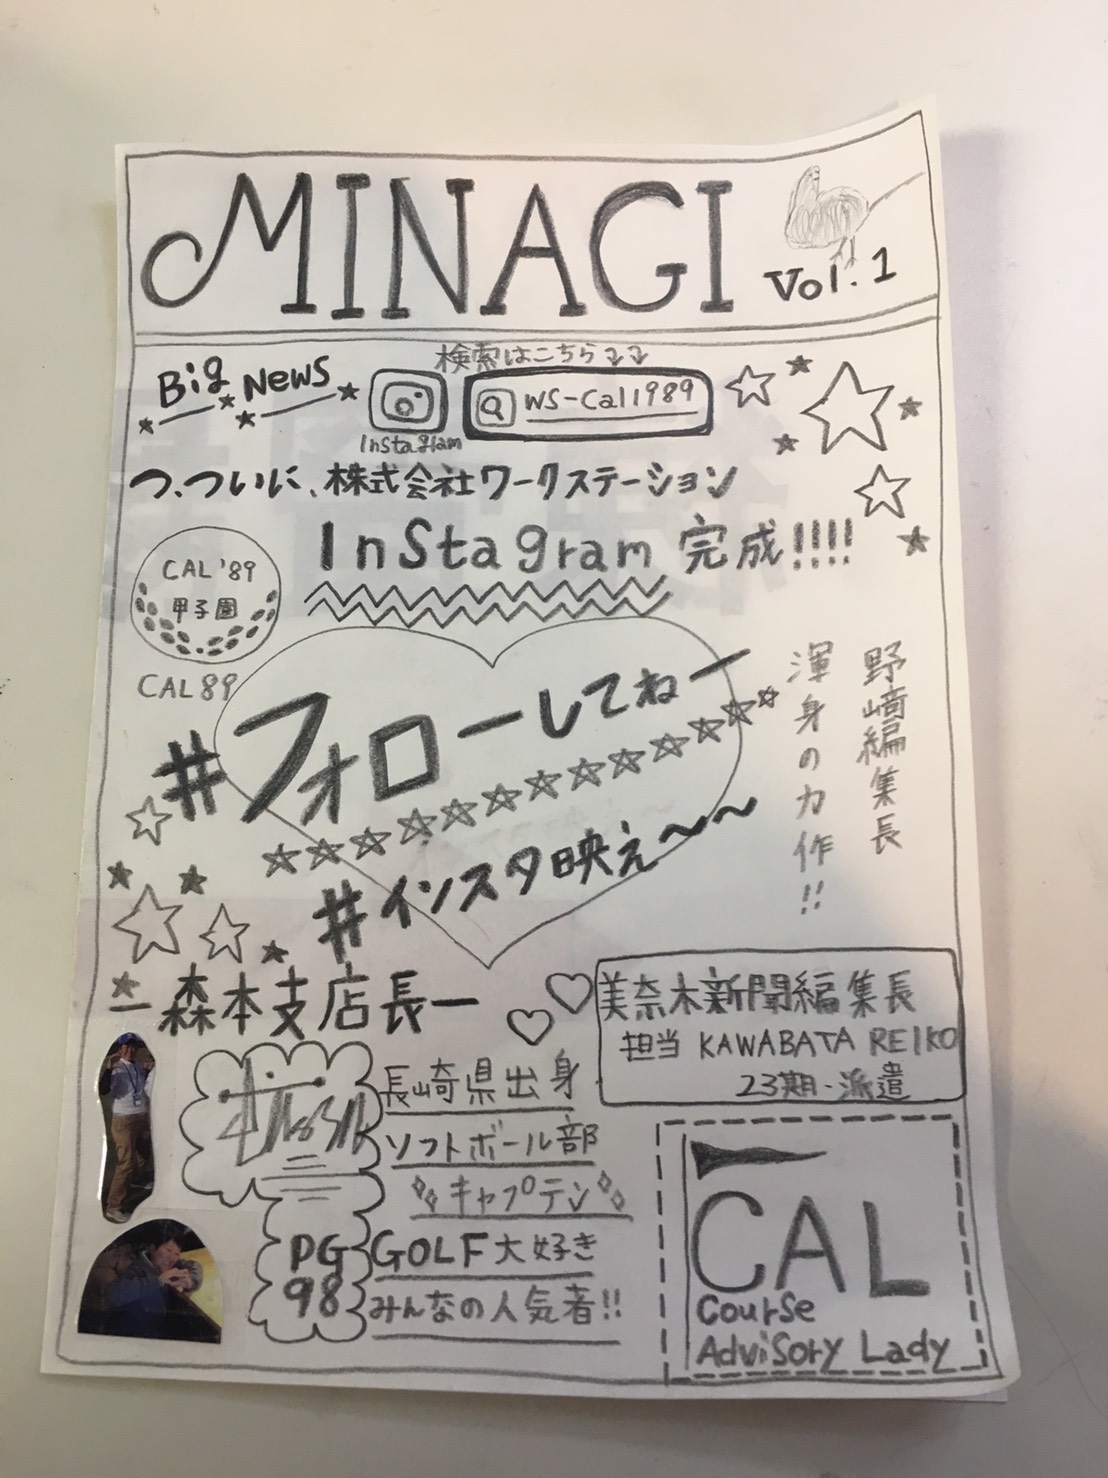 MINAGI
Vol.1
Big News
検索はこちら↴↴
Instagram
WS-Cal1989
つ、ついに、株式会社ワークステーション
Instagram 完成!!!!
CAL '89
甲子園
CAL 89
#フォローしてねー
#インスタ映え〜〜
野﨑編集長
渾身の力作!!
ー森本支店長ー
美奈木新聞編集長
担当 KAWABATA REIKO
23期・派遣
長崎県出身
ソフトボール部
キャプテン
PG
98
GOLF大好き
みんなの人気者!!
CAL
Course
Advisory Lady